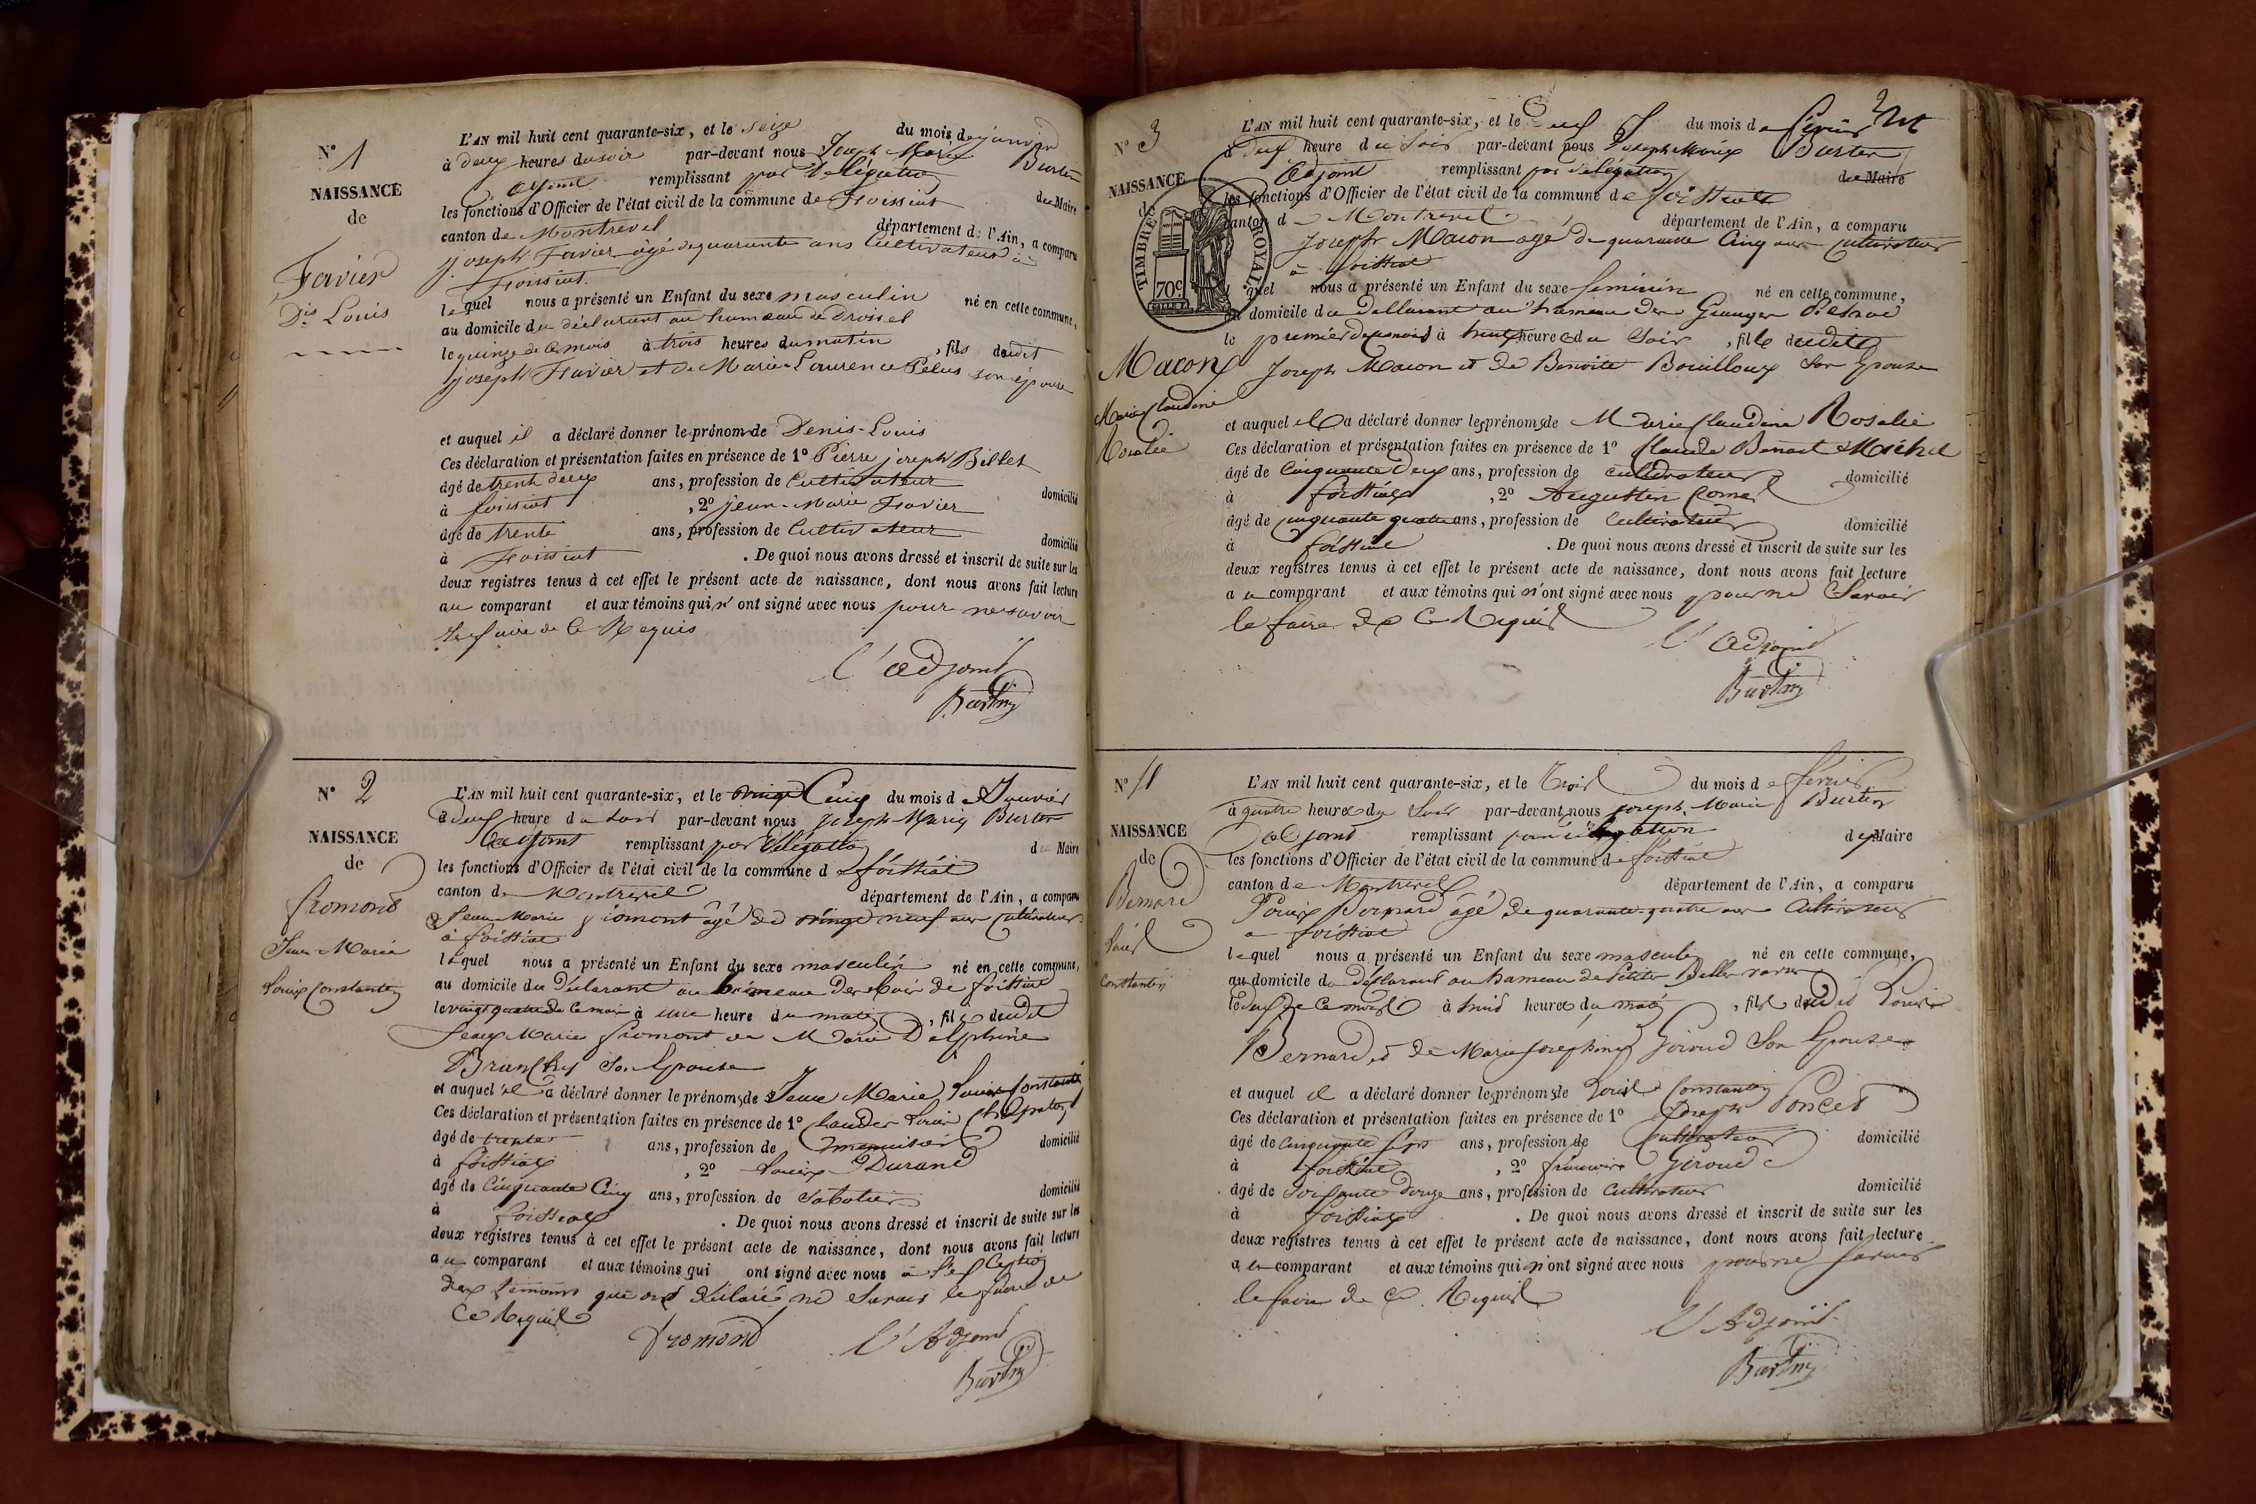 N° 1
NAISSANCE
de
Favier
Dis Louis
L'AN mil huit cent quarante-six, et le seize du mois de janvier
à deux heures du soir par-devant nous Joseph Marie Burtin
adjoint remplissant par délégation du Maire
les fonctions d'Officier de l'état civil de la commune de Foissiat
canton de Montrevel département de l'Ain, a comparu
joseph Favier âgé de quarante ans Cultivateur à
Foissiat
lequel nous a présenté un Enfant du sexe masculin né en cette commune,
au domicile du déclarant au hameau de
le quinze de ce mois à trois heures du matin, fils dudit
joseph Favier et de Marie-Laurence Pelus son épouse
et auquel il a déclaré donner les prénoms de Denis-Louis
Ces déclaration et présentation faites en présence de 1° Pierre joseph Billet
âgé de trente deux ans, profession de Cultivateur domicilié
à foissiat, 2° jean-Marie Favier
âgé de trente ans, profession de Cultivateur domicilié
à Foissiat. De quoi nous avons dressé et inscrit de suite sur les
deux registres tenus à cet effet le présent acte de naissance, dont nous avons fait lecture
au comparant et aux témoins qui n'ont signé avec nous pour ne savoir
le faire de ce Requis
L'adjoint
Burtin
N° 2
NAISSANCE
de
fromont
Jean Marie
Louis Constantin
L'AN mil huit cent quarante-six, et le vingt Cinq du mois de Janvier
à deux heure du soir par-devant nous Joseph Marie Burtin
adjoint remplissant par délégation du Maire
les fonctions d'Officier de l'état civil de la commune de foissiat
canton de Montrevel département de l'Ain, a comparu
Jean Marie fromont âgé de vingt neuf ans Cultivateur
à foissiat
lequel nous a présenté un Enfant du sexe masculin né en cette commune,
au domicile du déclarant au hameau de foissiat
le vingt quatre de ce mois à une heure du matin, fils dudit
Jean Marie fromont et de Marie Delphine
son épouse
et auquel il a déclaré donner les prénoms de Jean Marie Louis Constantin
Ces déclaration et présentation faites en présence de 1° Claude Louis
âgé de trente ans, profession de menuisier domicilié
à foissiat, 2° Louis Durand
âgé de Cinquante Cinq ans, profession de Sabotier domicilié
à foissiat. De quoi nous avons dressé et inscrit de suite sur les
deux registres tenus à cet effet le présent acte de naissance, dont nous avons fait lecture
au comparant et aux témoins qui ont signé avec nous à l'exception
des témoins qui ont déclaré ne savoir le faire de
ce Requis
fromond L'Adjoint
Burtin
2
N° 3
NAISSANCE
de
TIMBRE ROYAL
70c
Macon
Marie Claudine
Rosalie
L'AN mil huit cent quarante-six, et le Deux du mois de février
à Deux heure du Soir par-devant nous Joseph Marie Burtin
adjoint remplissant par délégation de Maire
les fonctions d'Officier de l'état civil de la commune de foissiat
canton de Montrevel département de l'Ain, a comparu
Joseph Macon agé de quarante Cinq ans cultivateur
à foissiat
lequel nous a présenté un Enfant du sexe feminin né en cette commune,
au domicile du Declarant au hameau des Granges
le premier de ce mois à heure du Soir, fille dudit
Joseph Macon et de Benoite Bouilloux Son Epouse
et auquel il a déclaré donner les prénoms de Marie Claudine Rosalie
Ces déclaration et présentation faites en présence de 1° Claude Benoit Michel
âgé de Cinquante Deux ans, profession de cultivateur domicilié
à foissiat, 2° Augustin
âgé de cinquante quatre ans, profession de cultivateur domicilié
à foissiat. De quoi nous avons dressé et inscrit de suite sur les
deux registres tenus à cet effet le présent acte de naissance, dont nous avons fait lecture
au comparant et aux témoins qui n'ont signé avec nous pour ne Savoir
le faire de Ce Requis
L'adjoint
Burtin
N°
NAISSANCE
de
Bernard
Louis
Constantin
L'AN mil huit cent quarante-six, et le trois du mois de février
à quatre heure du Soir par-devant nous Joseph Marie Burtin
adjoint remplissant par délégation de Maire
les fonctions d'Officier de l'état civil de la commune de foissiat
canton de Montrevel département de l'Ain, a comparu
Louis Bernard âgé de quarante quatre ans Cultivateur
à foissiat
lequel nous a présenté un Enfant du sexe masculin né en cette commune,
au domicile du déclarant au hameau de
le deux de ce mois à huit heure du matin, fils dudit Louis
Bernard et de Marie Josephine Giroud Son Epouse
et auquel il a déclaré donner les prénoms de Louis Constantin
Ces déclaration et présentation faites en présence de 1° Joseph Poncet
âgé de cinquante ans, profession de Cultivateur domicilié
à foissiat, 2° Giroud
âgé de Soixante Douze ans, profession de Cultivateur domicilié
à foissiat. De quoi nous avons dressé et inscrit de suite sur les
deux registres tenus à cet effet le présent acte de naissance, dont nous avons fait lecture
au comparant et aux témoins qui n'ont signé avec nous pour ne Savoir
le faire de ce Requis
L'Adjoint
Burtin